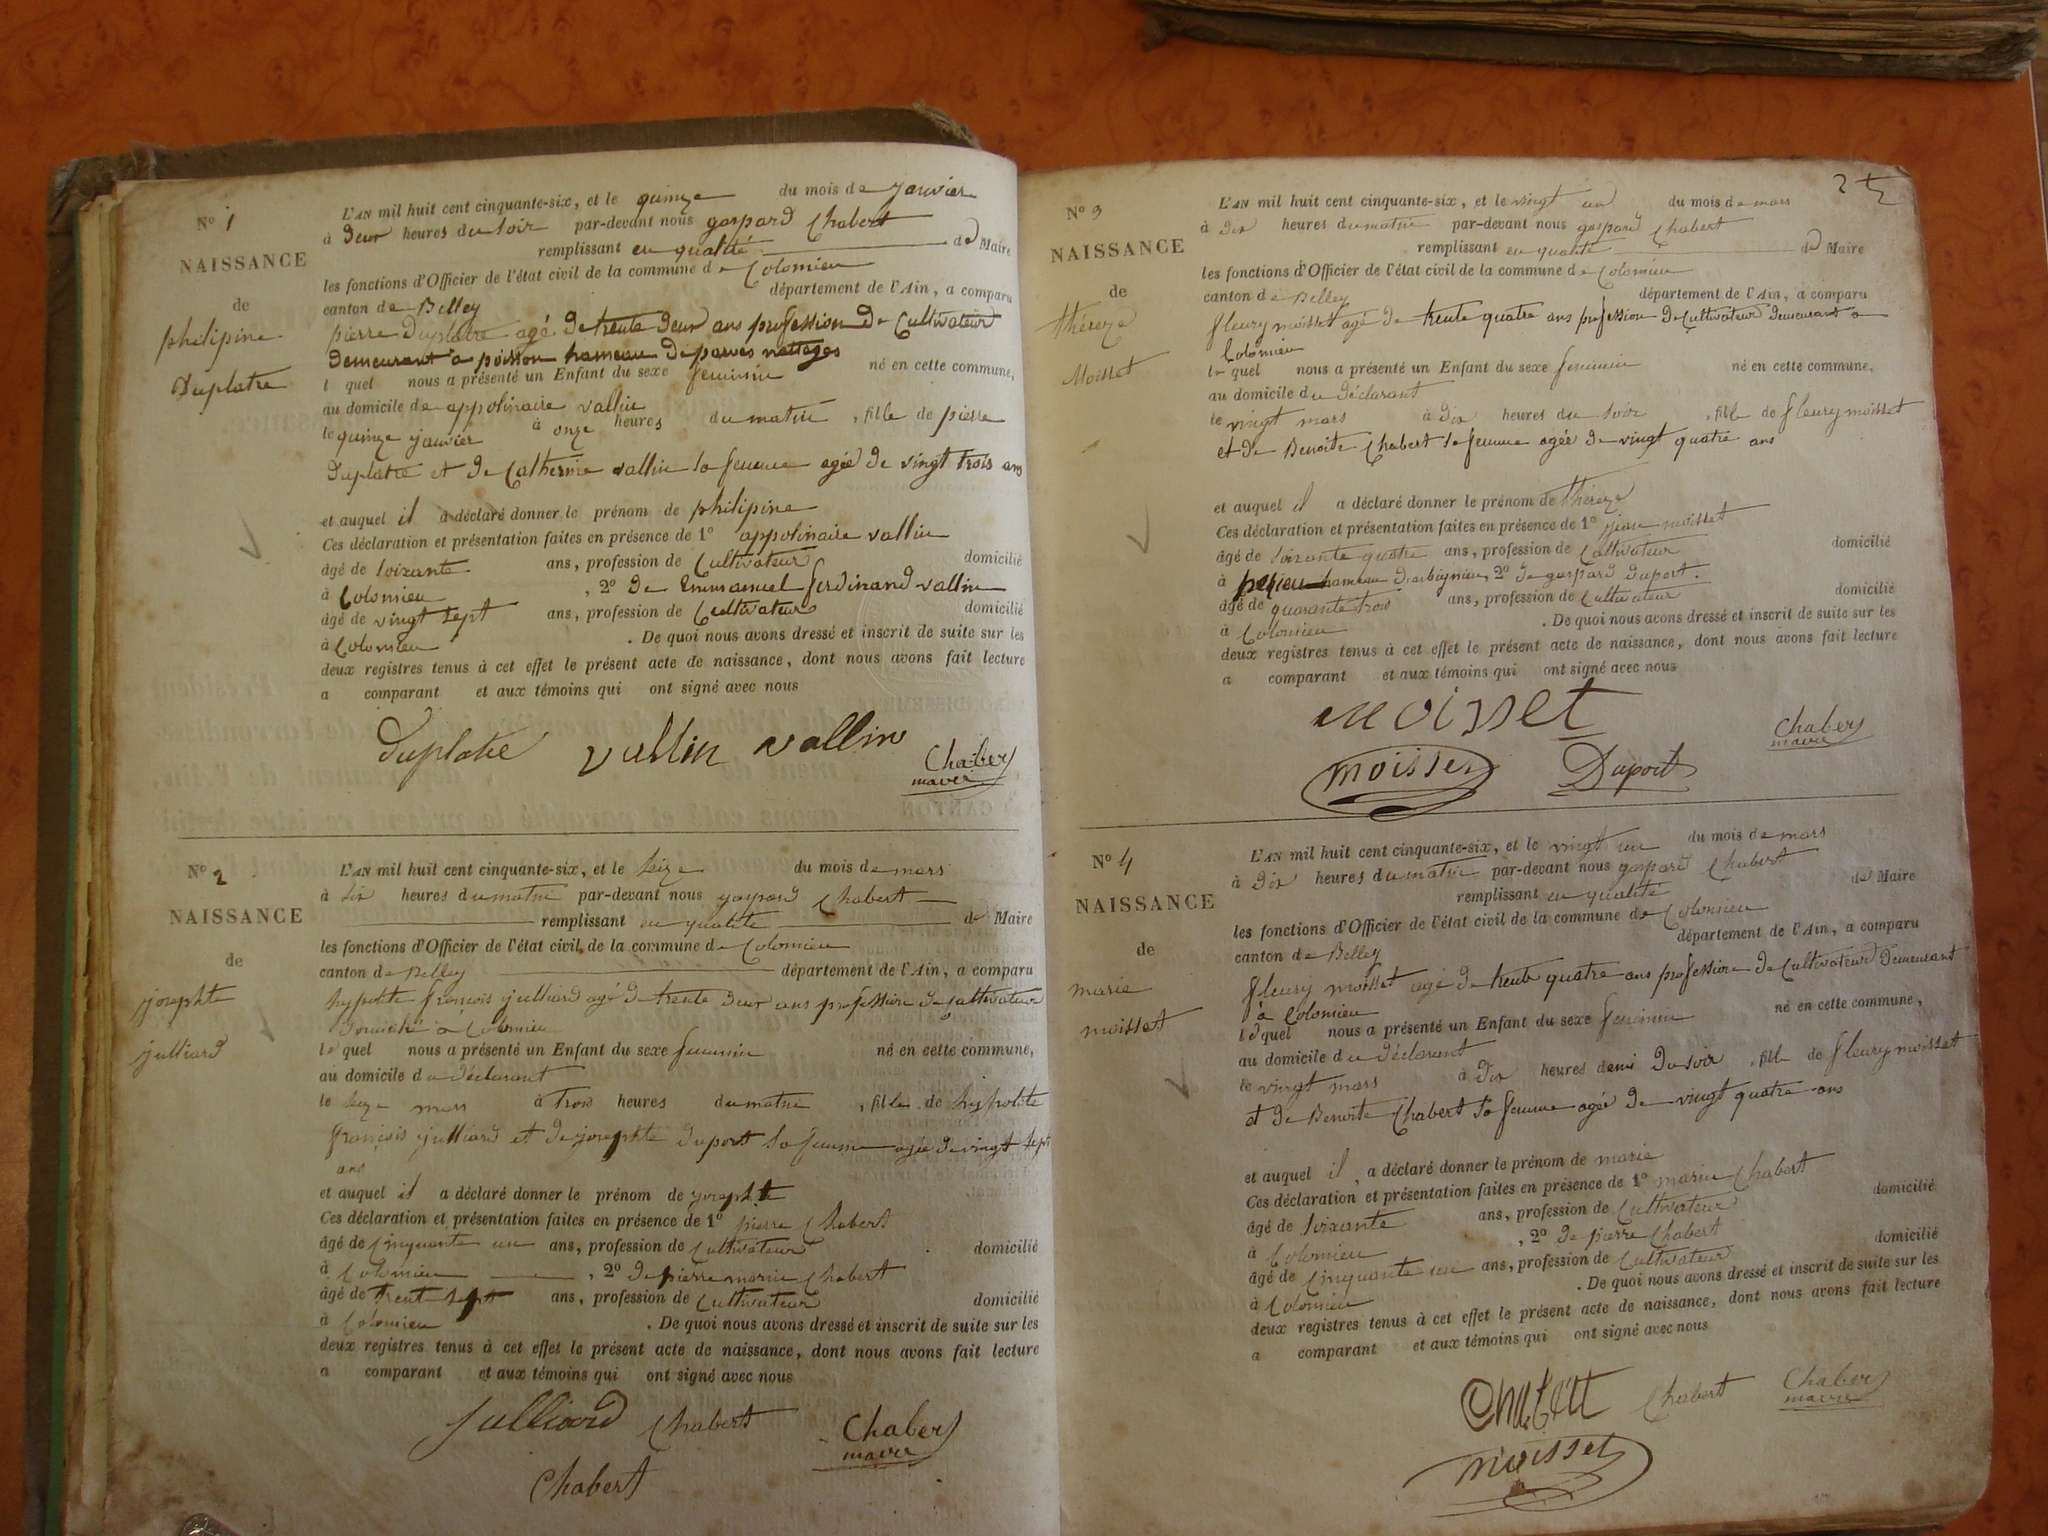 N.º 1
NAISSANCE
de
philipine
Duplatre
L'AN mil huit cent cinquante-six, et le quinze du mois de janvier
à deux heures du soir par-devant nous gaspard Chabert
remplissant en qualité de Maire
les fonctions d'Officier de l'état civil de la commune de Colomieu
canton de Belley département de l'Ain, a comparu
pierre Duplatre agé de trente deux ans profession de Cultivateur
demeurant a poisson hameau de parves nattages
l quel nous a présenté un Enfant du sexe feminin né en cette commune,
au domicile de appolinaire vallin
le quinze janvier à onze heures du matin, fille de pierre
Duplatre et de Catherine vallin sa femme agée de vingt trois ans
et auquel il a déclaré donner le prénom de philipine
Ces déclaration et présentation faites en présence de 1º appolinaire vallin
âgé de soixante ans, profession de Cultivateur domicilié
à Colomieu, 2º de Emmanuel ferdinand vallin
âgé de vingt sept ans, profession de Cultivateur domicilié
à Colomieu. De quoi nous avons dressé et inscrit de suite sur les
deux registres tenus à cet effet le présent acte de naissance, dont nous avons fait lecture
a comparant et aux témoins qui ont signé avec nous
Duplatre vallin vallin Chabert
maire
N.º 2
NAISSANCE
de
josephte
julliard
L'AN mil huit cent cinquante-six, et le seize du mois de mars
à six heures du matin par-devant nous gaspard Chabert
remplissant en qualité de Maire
les fonctions d'Officier de l'état civil de la commune de Colomieu
canton de Belley département de l'Ain, a comparu
hypolite francois julliard agé de trente deux ans profession de cultivateur
domicilié a Colomieu
le quel nous a présenté un Enfant du sexe feminin né en cette commune,
au domicile du déclarant
le seize mars à trois heures du matin, fille de hippolite
françois julliard et de josephte duport sa femme agée de vingt sept
ans
et auquel il a déclaré donner le prénom de josephte
Ces déclaration et présentation faites en présence de 1º pierre Chabert
âgé de cinquante un ans, profession de Cultivateur domicilié
à Colomieu, 2º de pierre marin Chabert
âgé de trent sept ans, profession de Cultivateur domicilié
à Colomieu. De quoi nous avons dressé et inscrit de suite sur les
deux registres tenus à cet effet le présent acte de naissance, dont nous avons fait lecture
a comparant et aux témoins qui ont signé avec nous
Julliard Chabert Chabert
maire
Chabert
2
N.º 3
NAISSANCE
de
thèreze
Moisset
L'AN mil huit cent cinquante-six, et le vingt un du mois de mars
à dix heures du matin par-devant nous gaspard Chabert
remplissant en qualité de Maire
les fonctions d'Officier de l'état civil de la commune de Colomieu
canton de Belley département de l'Ain, a comparu
fleury moisset agé de trente quatre ans profession de Cultivateur demeurant a
Colomieu
le quel nous a présenté un Enfant du sexe feminin né en cette commune,
au domicile du déclarant
le vingt mars à dix heures du soir, fille de fleury moisset
et de Benoite Chabert sa femme agée de vingt quatre ans
et auquel il a déclaré donner le prénom de thèreze
Ces déclaration et présentation faites en présence de 1º jean moisset
âgé de soixante quatre ans, profession de Cultivateur domicilié
à hameau d'arbignieu, 2º de gaspard duport.
âgé de quarante trois ans, profession de Cultivateur domicilié
à Colomieu. De quoi nous avons dressé et inscrit de suite sur les
deux registres tenus à cet effet le présent acte de naissance, dont nous avons fait lecture
a comparant et aux témoins qui ont signé avec nous
moisset
Chabert
maire
moisset Duport
N.º 4
NAISSANCE
de
marie
moisset
L'AN mil huit cent cinquante-six, et le vingt un du mois de mars
à dix heures du matin par-devant nous gaspard Chabert
remplissant en qualité de Maire
les fonctions d'Officier de l'état civil de la commune de Colomieu
canton de Belley département de l'Ain, a comparu
fleury moisset agé de trente quatre ans profession de Cultivateur demeurant
à Colomieu
le quel nous a présenté un Enfant du sexe feminin né en cette commune,
au domicile du déclarant
le vingt mars à dix heures demi du soir, fille de fleury moisset
et de Benoite Chabert sa femme agée de vingt quatre ans
et auquel il a déclaré donner le prénom de marie
Ces déclaration et présentation faites en présence de 1º marin Chabert
âgé de soixante ans, profession de Cultivateur domicilié
à Colomieu, 2º de pierre Chabert
âgé de cinquante un ans, profession de Cultivateur domicilié
à Colomieu. De quoi nous avons dressé et inscrit de suite sur les
deux registres tenus à cet effet le présent acte de naissance, dont nous avons fait lecture
a comparant et aux témoins qui ont signé avec nous
Chabert Chabert Chabert
maire
moisset